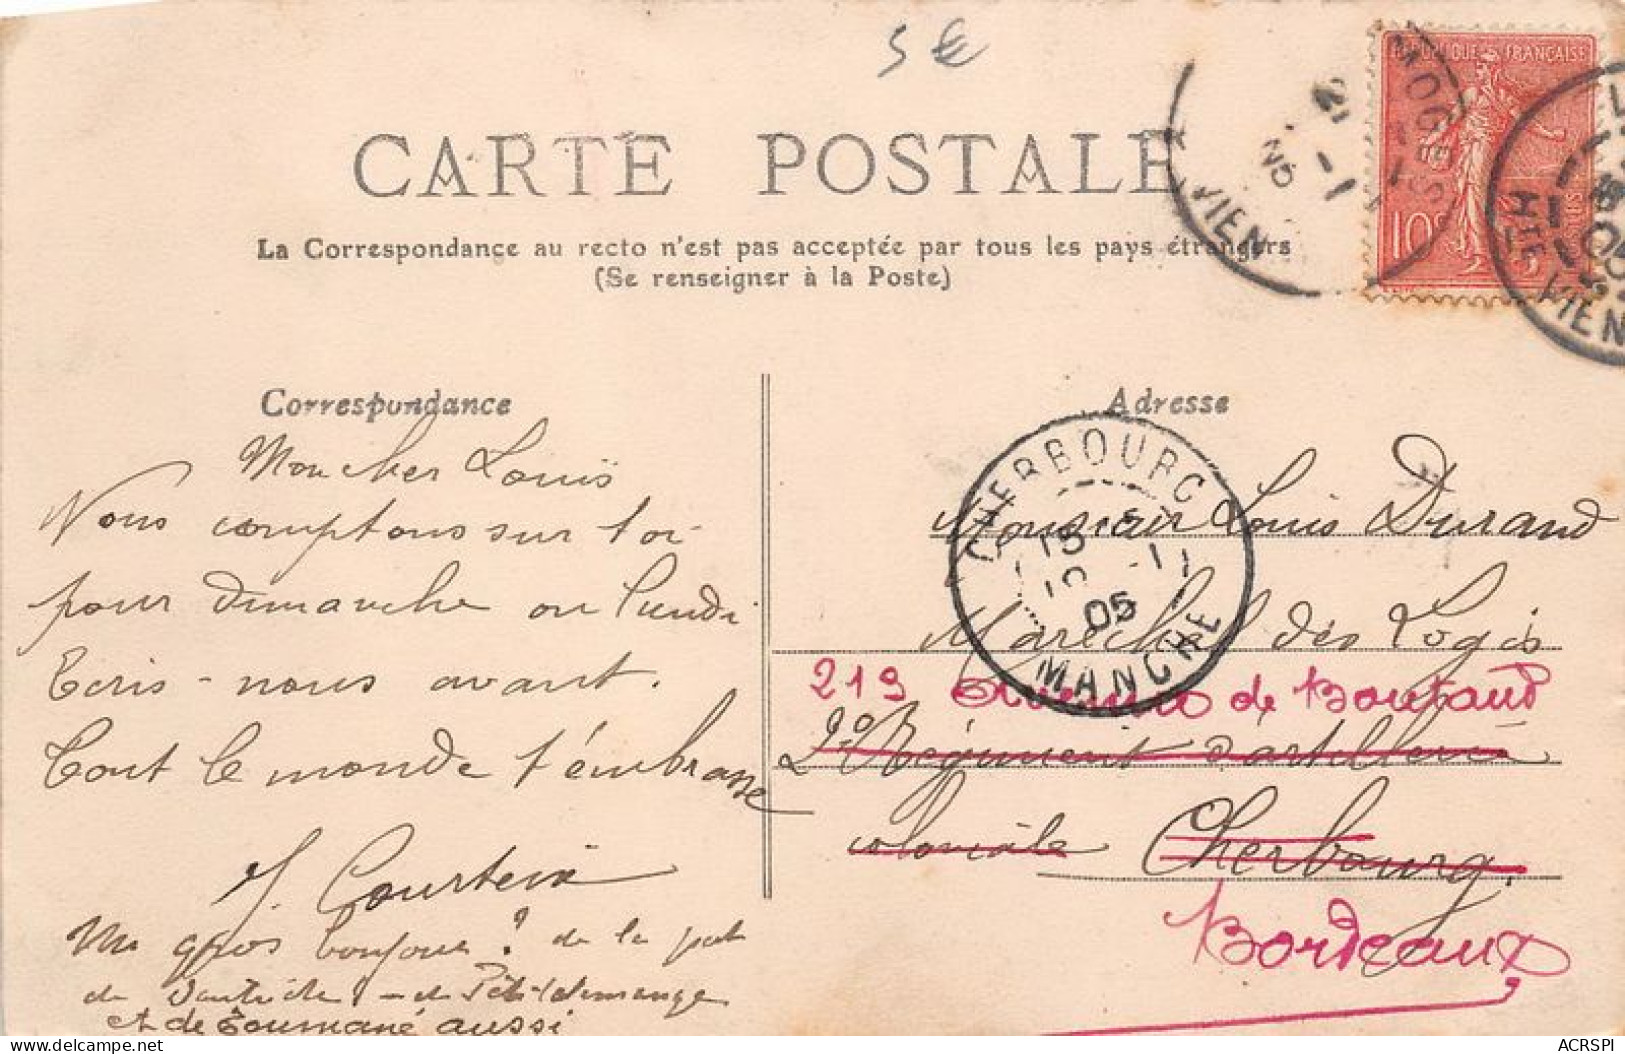 5 €
CARTE POSTALE
La Correspondance au recto n'est pas acceptée par tous les pays étrangers
(Se renseigner à la Poste)
RÉPUBLIQUE FRANÇAISE
10c
POSTES
LIMOGES
Hte VIEN
05
Correspondance
Mon cher Louis
Nous comptons sur toi
pour dimanche ou lundi
Ecris-nous avant.
Tout le monde t'embrasse
J. Courteix
Un gros bonjour de la part
de
et de aussi
Adresse
CHERBOURG
MANCHE
05
Monsieur Louis Durand
Maréchal des Logis
219 de
2e Régiment d'artillerie
coloniale Cherbourg.
Bordeaux
ACRSPI
delcampe.net